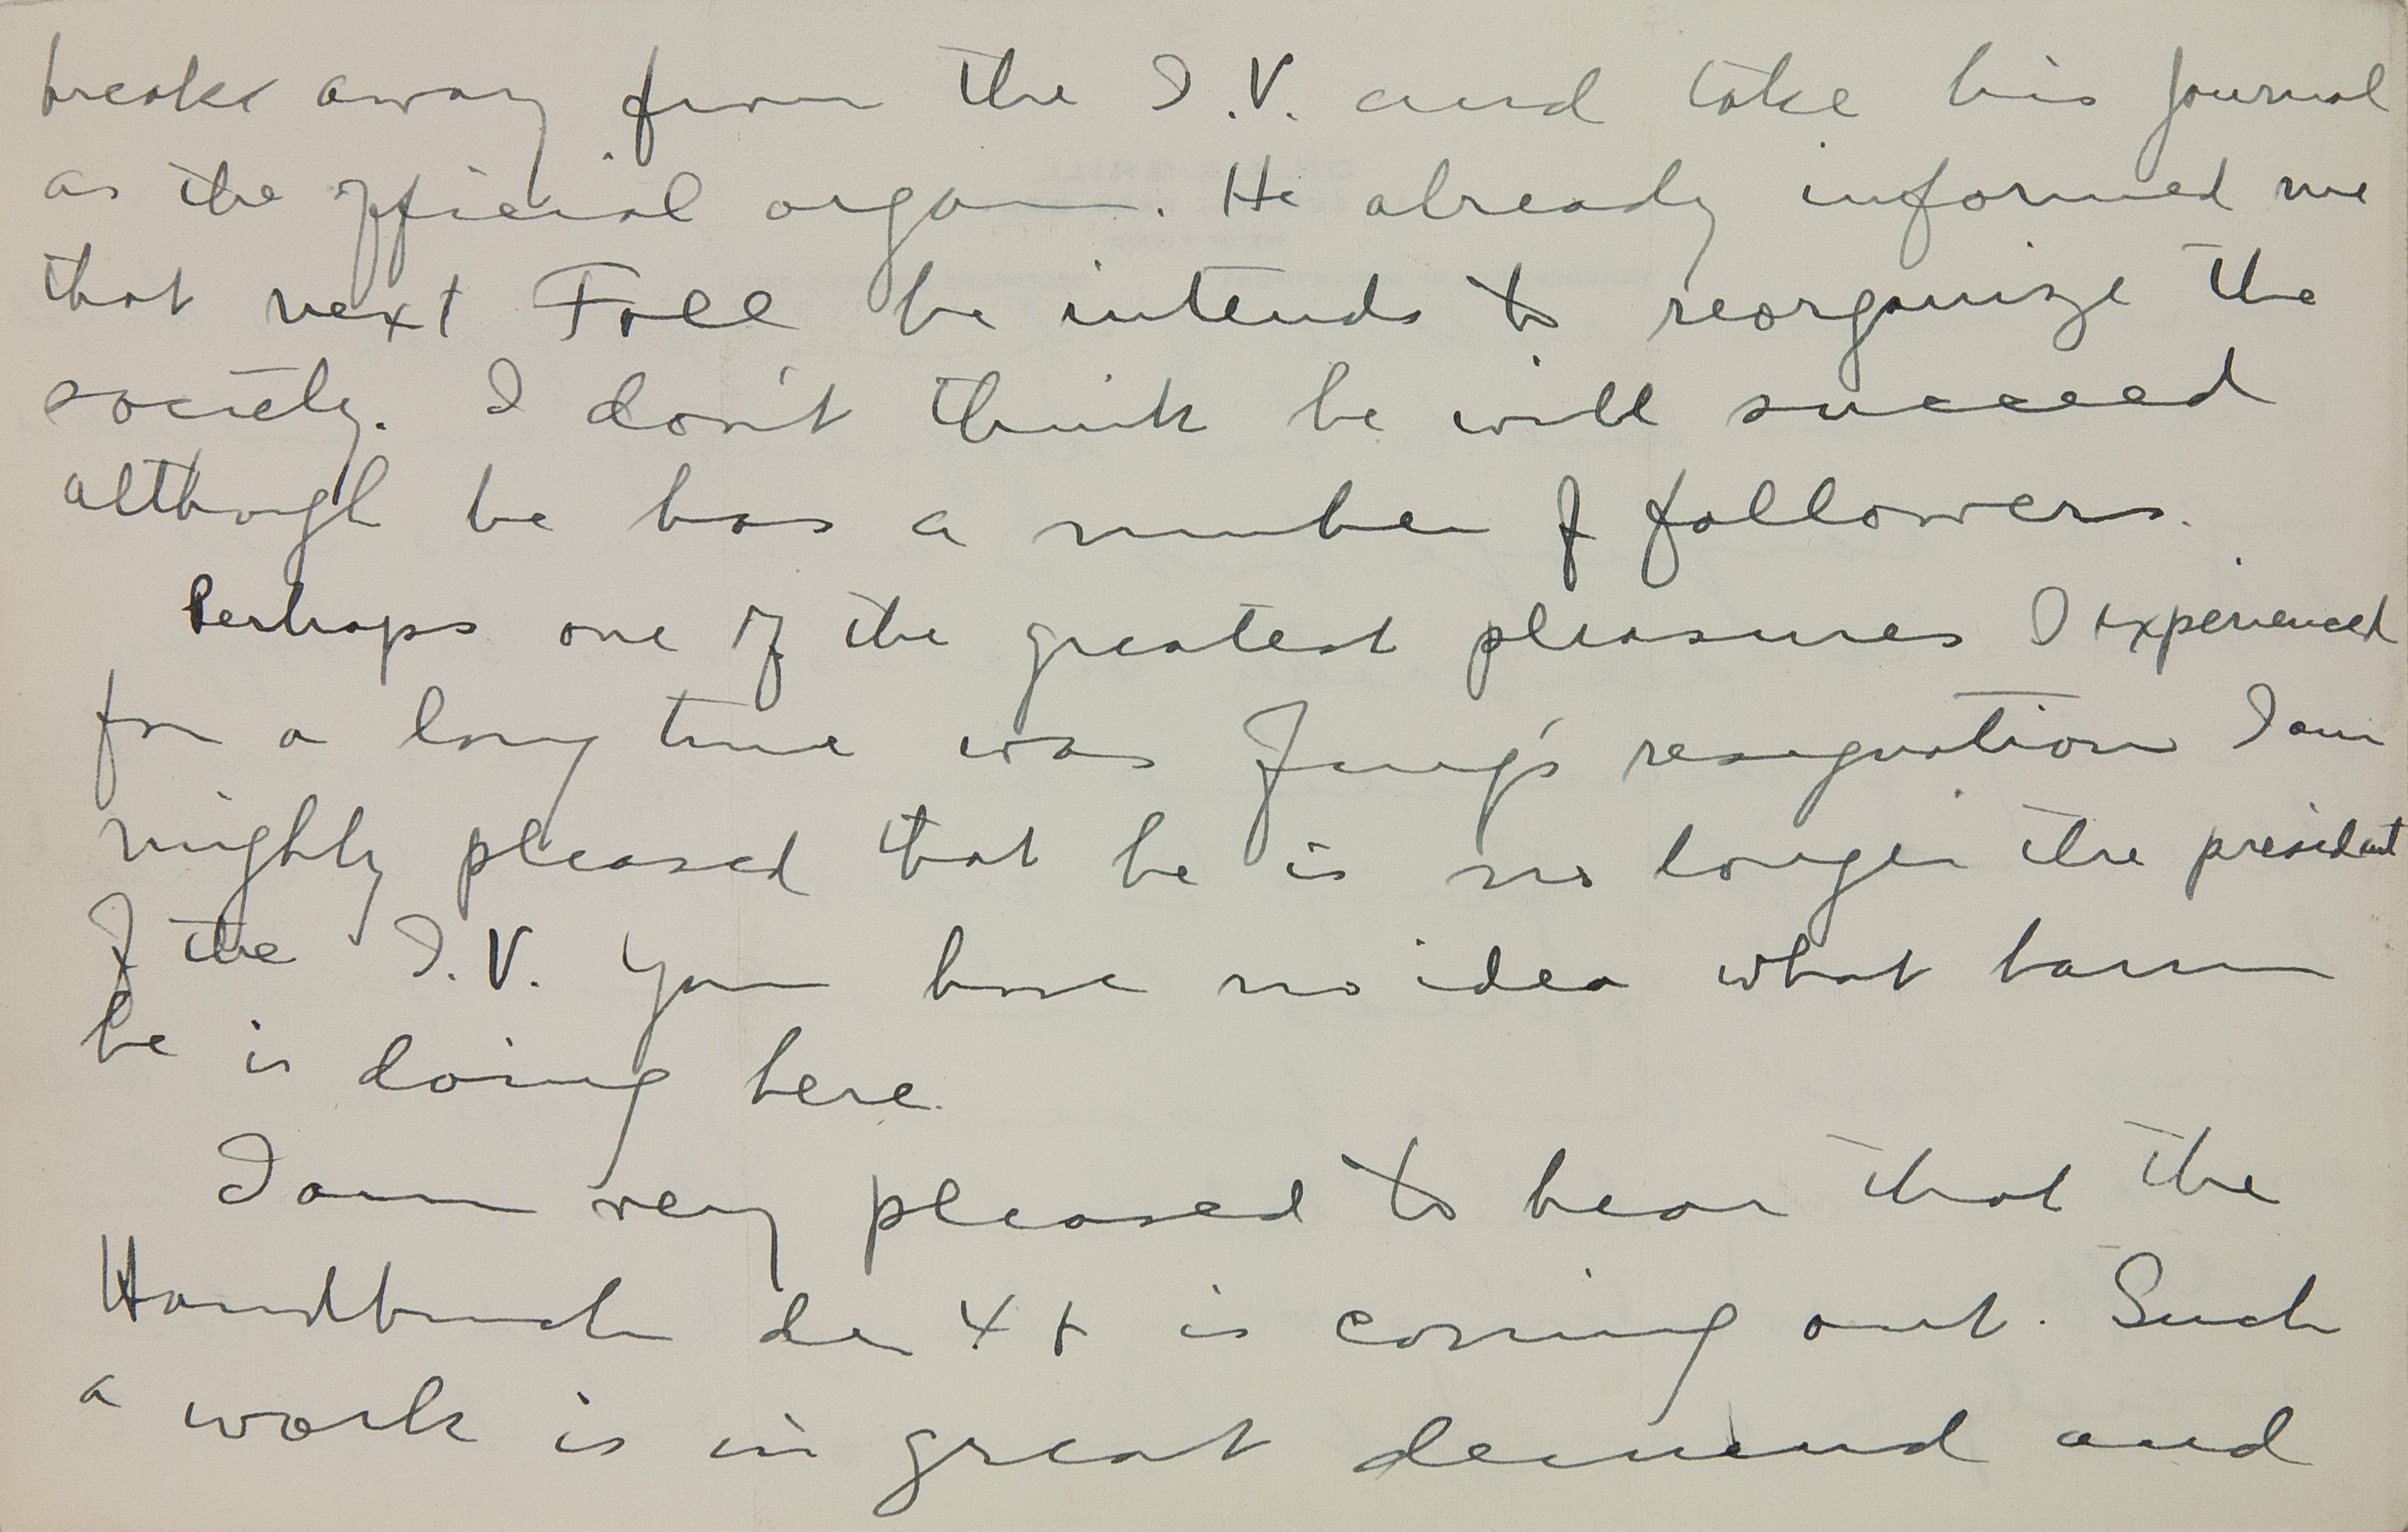 breaks away from the I.V. and take his Journal
as the official organ. He already informed me
that next Fall he intends to reorganize the
society. I don't think he will succeed
although he has a number of followers.
Perhaps one of the greatest pleasures I experienced
for a long time was Jung's resignation I am
mighty pleased that he is no longer the president
of the I.V. You have no idea what harm
he is doing here.
I am very pleased to hear that the
Handbuch der is coming out. Such
a work is in great demand and